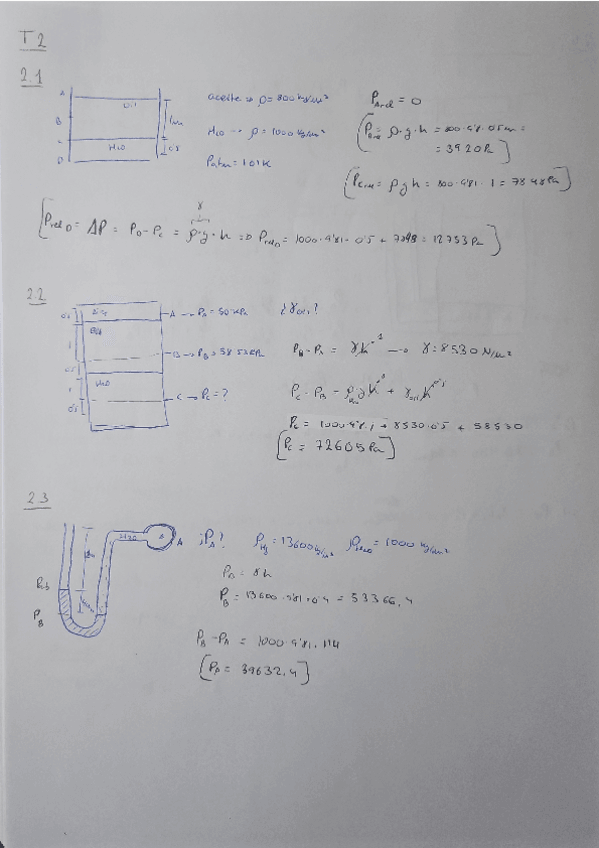 T2
2.1
A
B
C
D
Oil
H2O
1m
0'5
aceite → ρ = 800 kg/m³
H2O → ρ = 1000 kg/m³
Patm = 101K
PArel = 0
PBrel = ρ·g·h = 800·9'81·0'5m =
= 3920Pa
PCrel = ρgh = 800·9'81·1 = 7848Pa
γ
PrelD = ΔP = PD - PC = ρ·g·h => PrelD = 1000·9'81·0'5 + 7848 = 12753 Pa
2.2
Oil
H2O
0'5
1
1
0'5
A → PA = 50KPa
B → PB = 58'53KPa
C → PC = ?
¿γoil?
PB - PA = γh¹ → γ = 8530 N/m³
PC - PB = ρH2O g h¹ + γoil h⁰'⁵
PC = 1000·9'81·1 + 8530·0'5 + 58530
PC = 72605Pa
2.3
H2O
A
A
PB
¿PA?
ρHg = 13600 kg/m³
ρH2O = 1000 kg/m³
PB = γh
PB = 13600·9'81·0'4 = 53366,4
PB - PA = 1000·9'81·1'4
PA = 39632,4